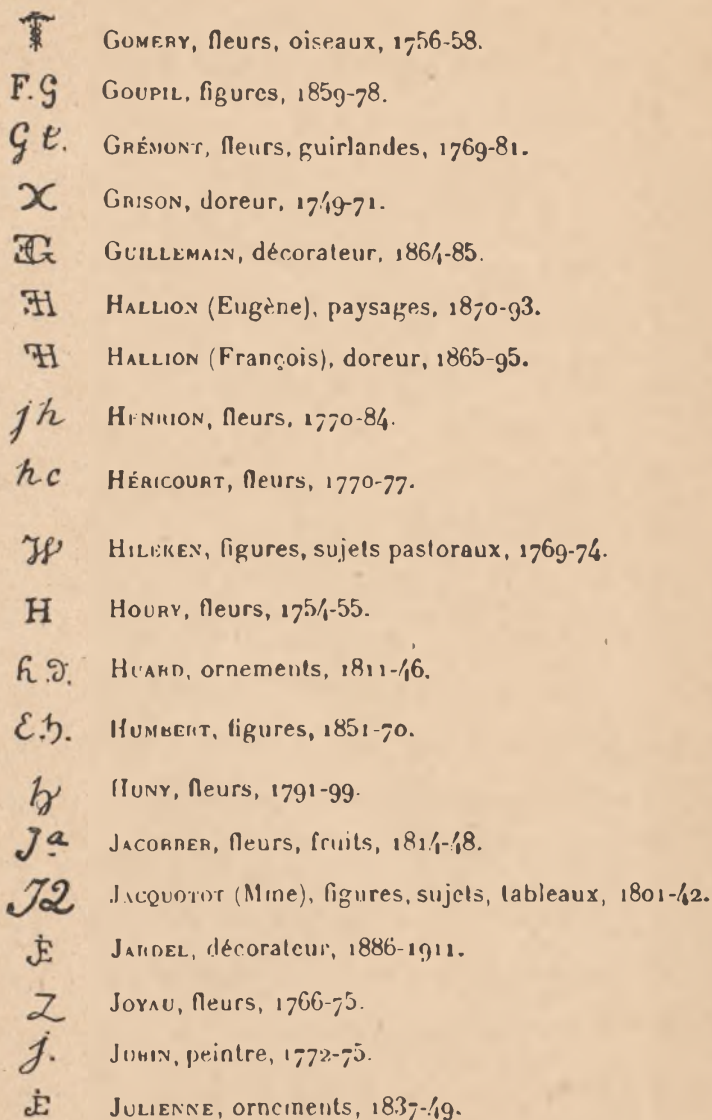 GOMERY, fleurs, oiseaux, 1756-58.
F.G GOUPIL, figures, 1859-78.
G t. GRÉMONT, fleurs, guirlandes, 1769-81.
X GRISON, doreur, 1749-71.
GUILLEMAIN, décorateur, 1864-85.
HALLION (Eugène), paysages, 1870-93.
HALLION (François), doreur, 1865-95.
jh HENRION, fleurs, 1770-84.
hc HÉRICOURT, fleurs, 1770-77.
W HILEKEN, figures, sujets pastoraux, 1769-74.
H HOURY, fleurs, 1754-55.
h.D. HUARD, ornements, 1811-46.
E.h. HUMBERT, figures, 1851-70.
HUNY, fleurs, 1791-99.
Ja JACOBBER, fleurs, fruits, 1814-48.
JQ JACQUOTOT (Mme), figures, sujets, tableaux, 1801-42.
JE JARDEL, décorateur, 1886-1911.
Z JOYAU, fleurs, 1766-75.
j. JUBIN, peintre, 1772-75.
JE JULIENNE, ornements, 1837-49.